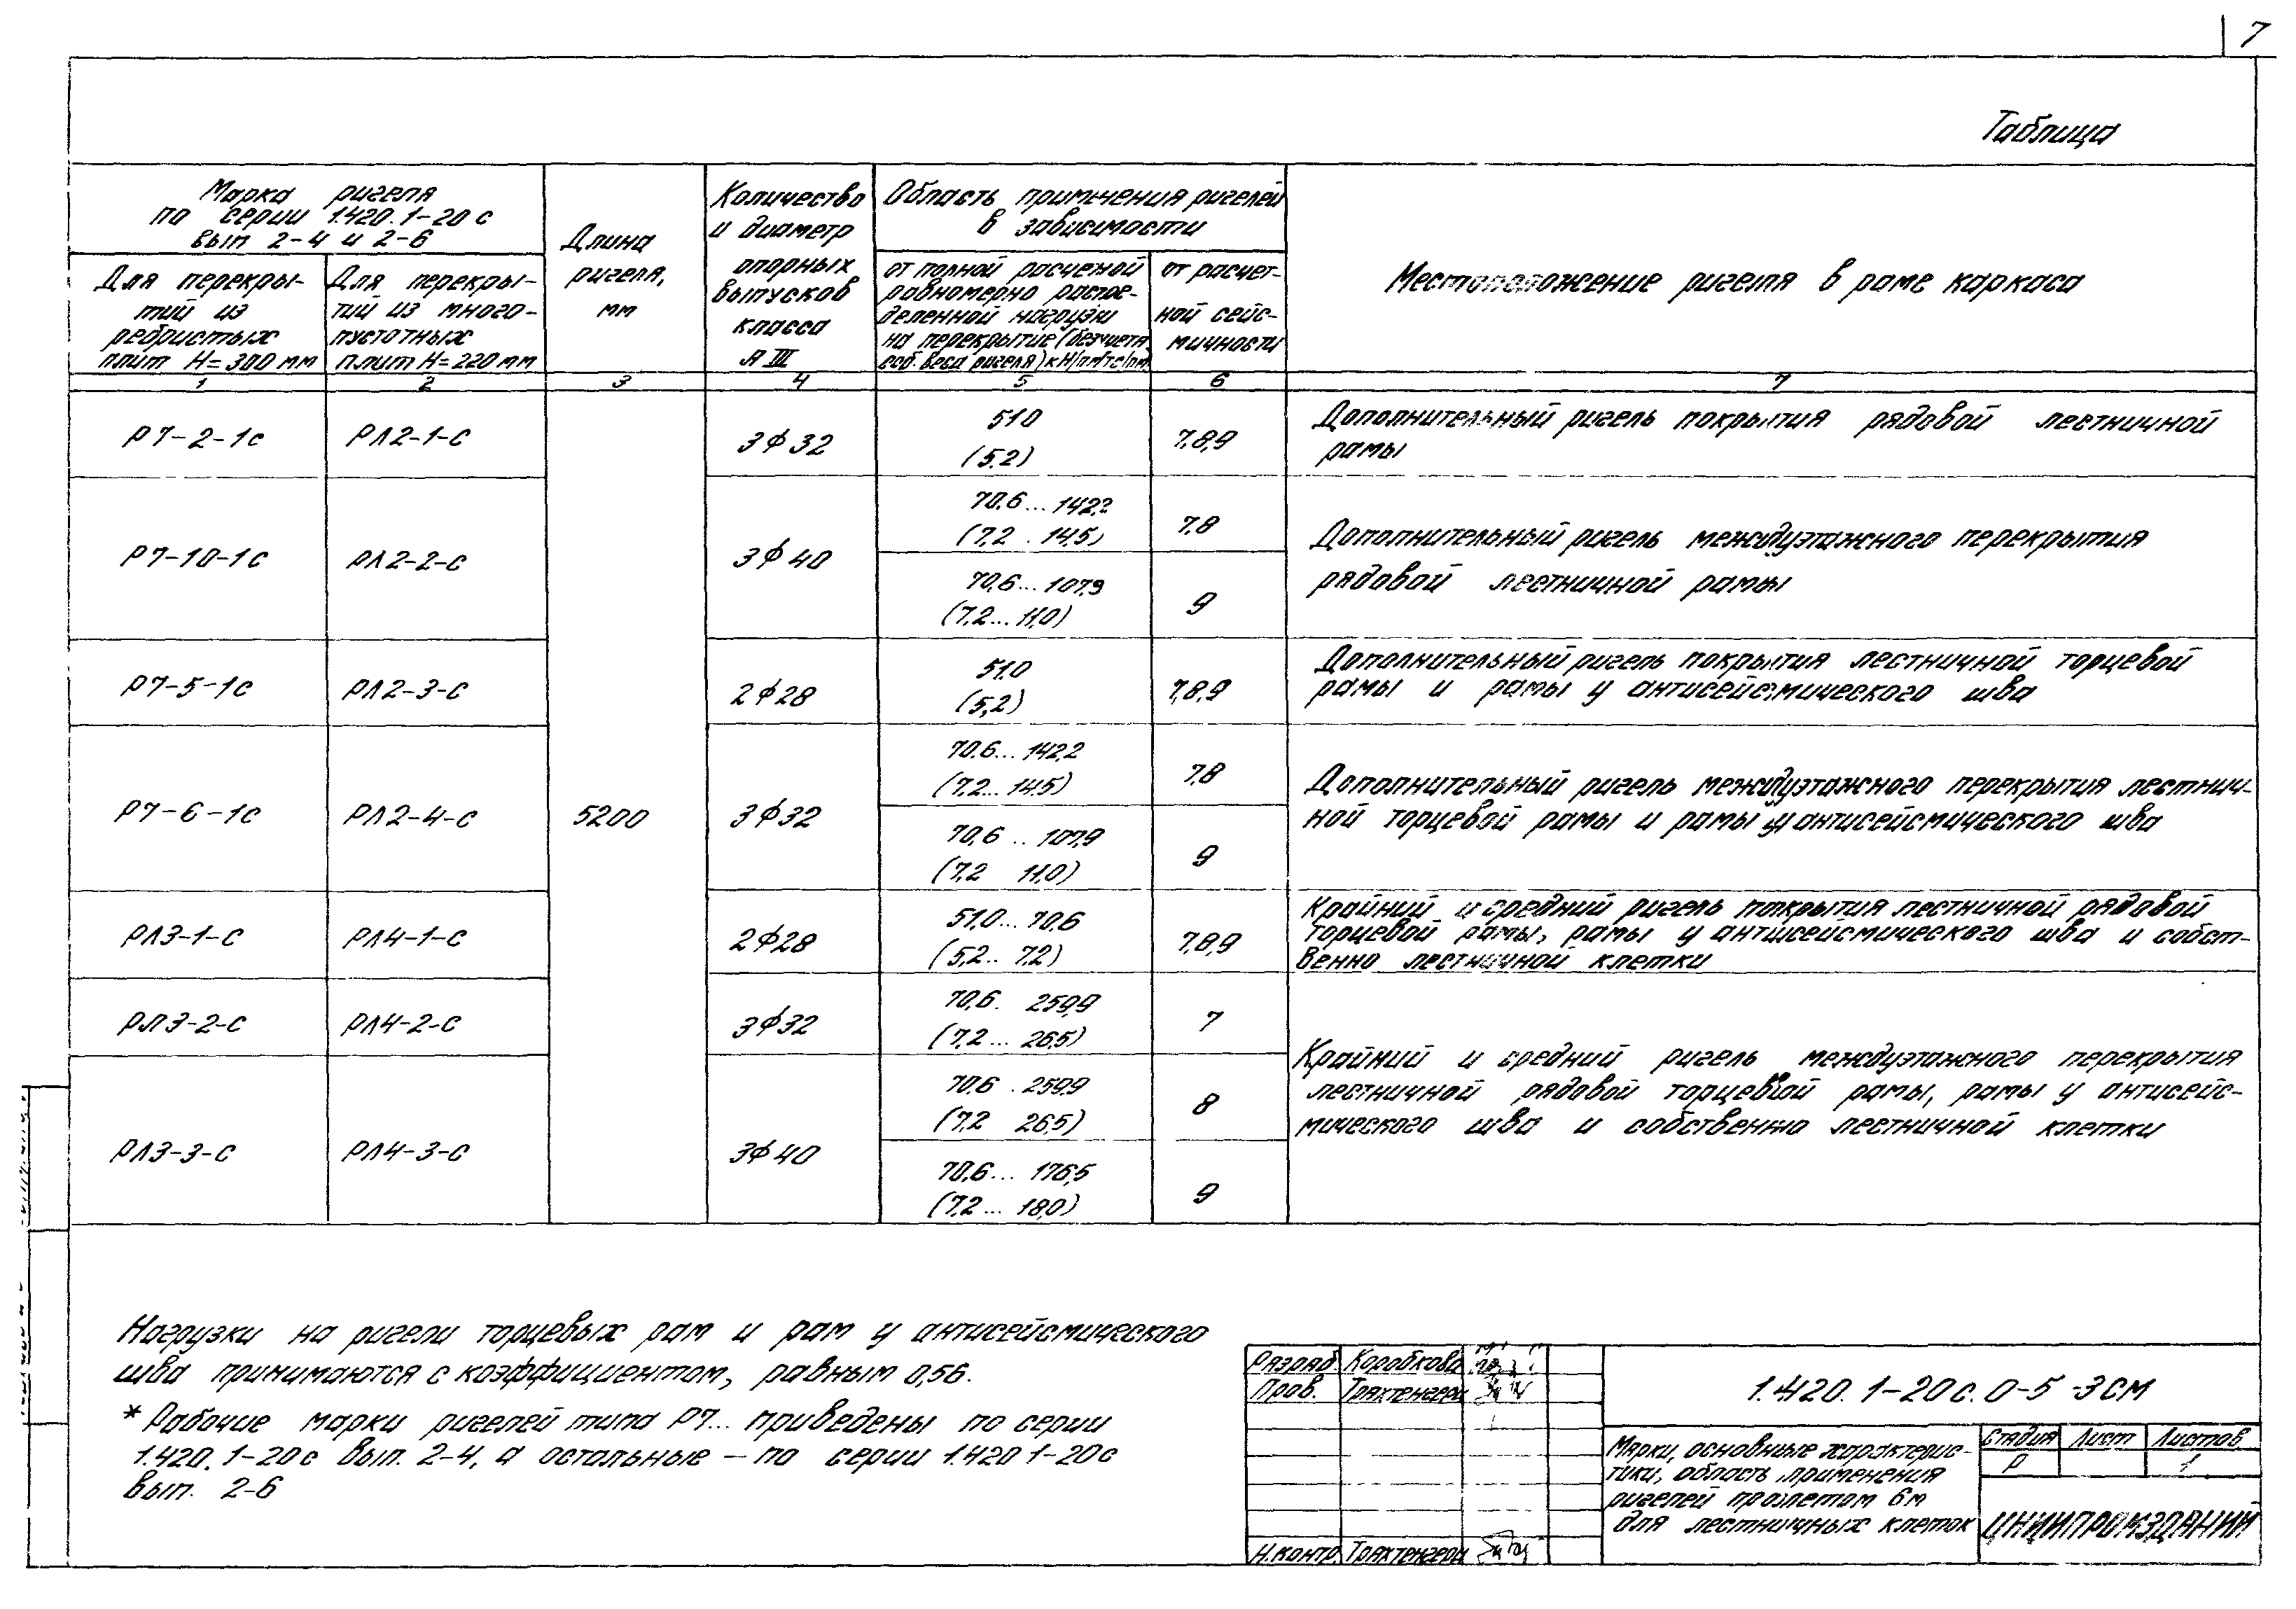 7
Таблица
Марка ригеля
по серии 1.420.1-20с
вып 2-4 и 2-6
Длина
ригеля,
мм
Количество
и диаметр
опорных
выпусков
класса
А III
Область применения ригелей
в зависимости
Местоположение ригеля в раме каркаса
Для перекры-
тий из
ребристых
плит Н=300 мм
Для перекры-
тий из много-
пустотных
плит Н=220 мм
от полной расчетной
равномерно распре-
деленной нагрузки
на перекрытие (без учета
соб. веса ригеля) кН/пм/тс/пм
от расчет-
ной сейс-
мичности
1 2 3 4 5 6 7
Р7-2-1с РЛ2-1-С 3ϕ32 51,0 (5,2) 7,8,9
Дополнительный ригель покрытия рядовой лестничной
рамы
Р7-10-1с РЛ2-2-С 3ϕ40
70,6...142,2
(7,2 . 14,5)
7,8
70,6...107,9
(7,2...11,0)
9
Дополнительный ригель междуэтажного перекрытия
рядовой лестничной рамы
Р7-5-1с РЛ2-3-С 2ϕ28 51,0 (5,2) 7,8,9
Дополнительный ригель покрытия лестничной торцевой
рамы и рамы у антисейсмического шва
Р7-6-1с РЛ2-4-С 5200 3ϕ32
70,6...142,2
(7,2...14,5)
7,8
70,6 .. 107,9
(7,2 11,0)
9
Дополнительный ригель междуэтажного перекрытия лестнич-
ной торцевой рамы и рамы у антисейсмического шва
РЛ3-1-С РЛ4-1-С 2ϕ28
51,0...70,6
(5,2.. 7,2)
7,8,9
Крайний и средний ригель покрытия лестничной рядовой
торцевой рамы, рамы у антисейсмического шва и собст-
венно лестничной клетки
РЛ3-2-С РЛ4-2-С 3ϕ32
70,6. 259,9
(7,2... 26,5)
7
РЛ3-3-С РЛ4-3-С 3ϕ40
70,6 . 259,9
(7,2 26,5)
8
70,6... 176,5
(7,2... 18,0)
9
Крайний и средний ригель междуэтажного перекрытия
лестничной рядовой торцевой рамы, рамы у антисейс-
мического шва и собственно лестничной клетки
Нагрузки на ригели торцевых рам и рам у антисейсмического
шва принимаются с коэффициентом, равным 0,56.
* Рабочие марки ригелей типа Р7... приведены по серии
1.420.1-20с вып. 2-4, а остальные - по серии 1.420 1-20с
вып. 2-6
Разраб Коробкова
Пров. Трахтенгерц
Н.контр Трахтенгерц
1.420.1-20с. 0-5 -3СМ
Марки, основные характерис-
тики, область применения
ригелей пролетом 6м
для лестничных клеток
Стадия Лист Листов
Р 1
ЦНИИПРОМЗДАНИЙ